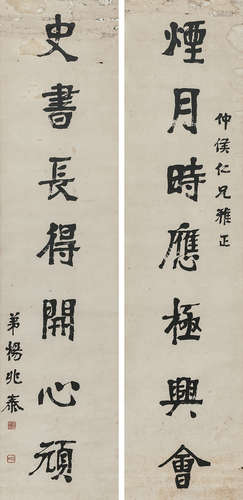 煙月時應極興會
仲侯仁兄雅正
史書長得開心頑
弟楊兆泰